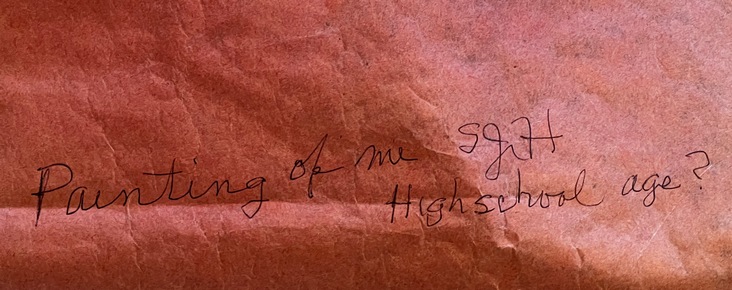 Painting of me SJH
Highschool age?